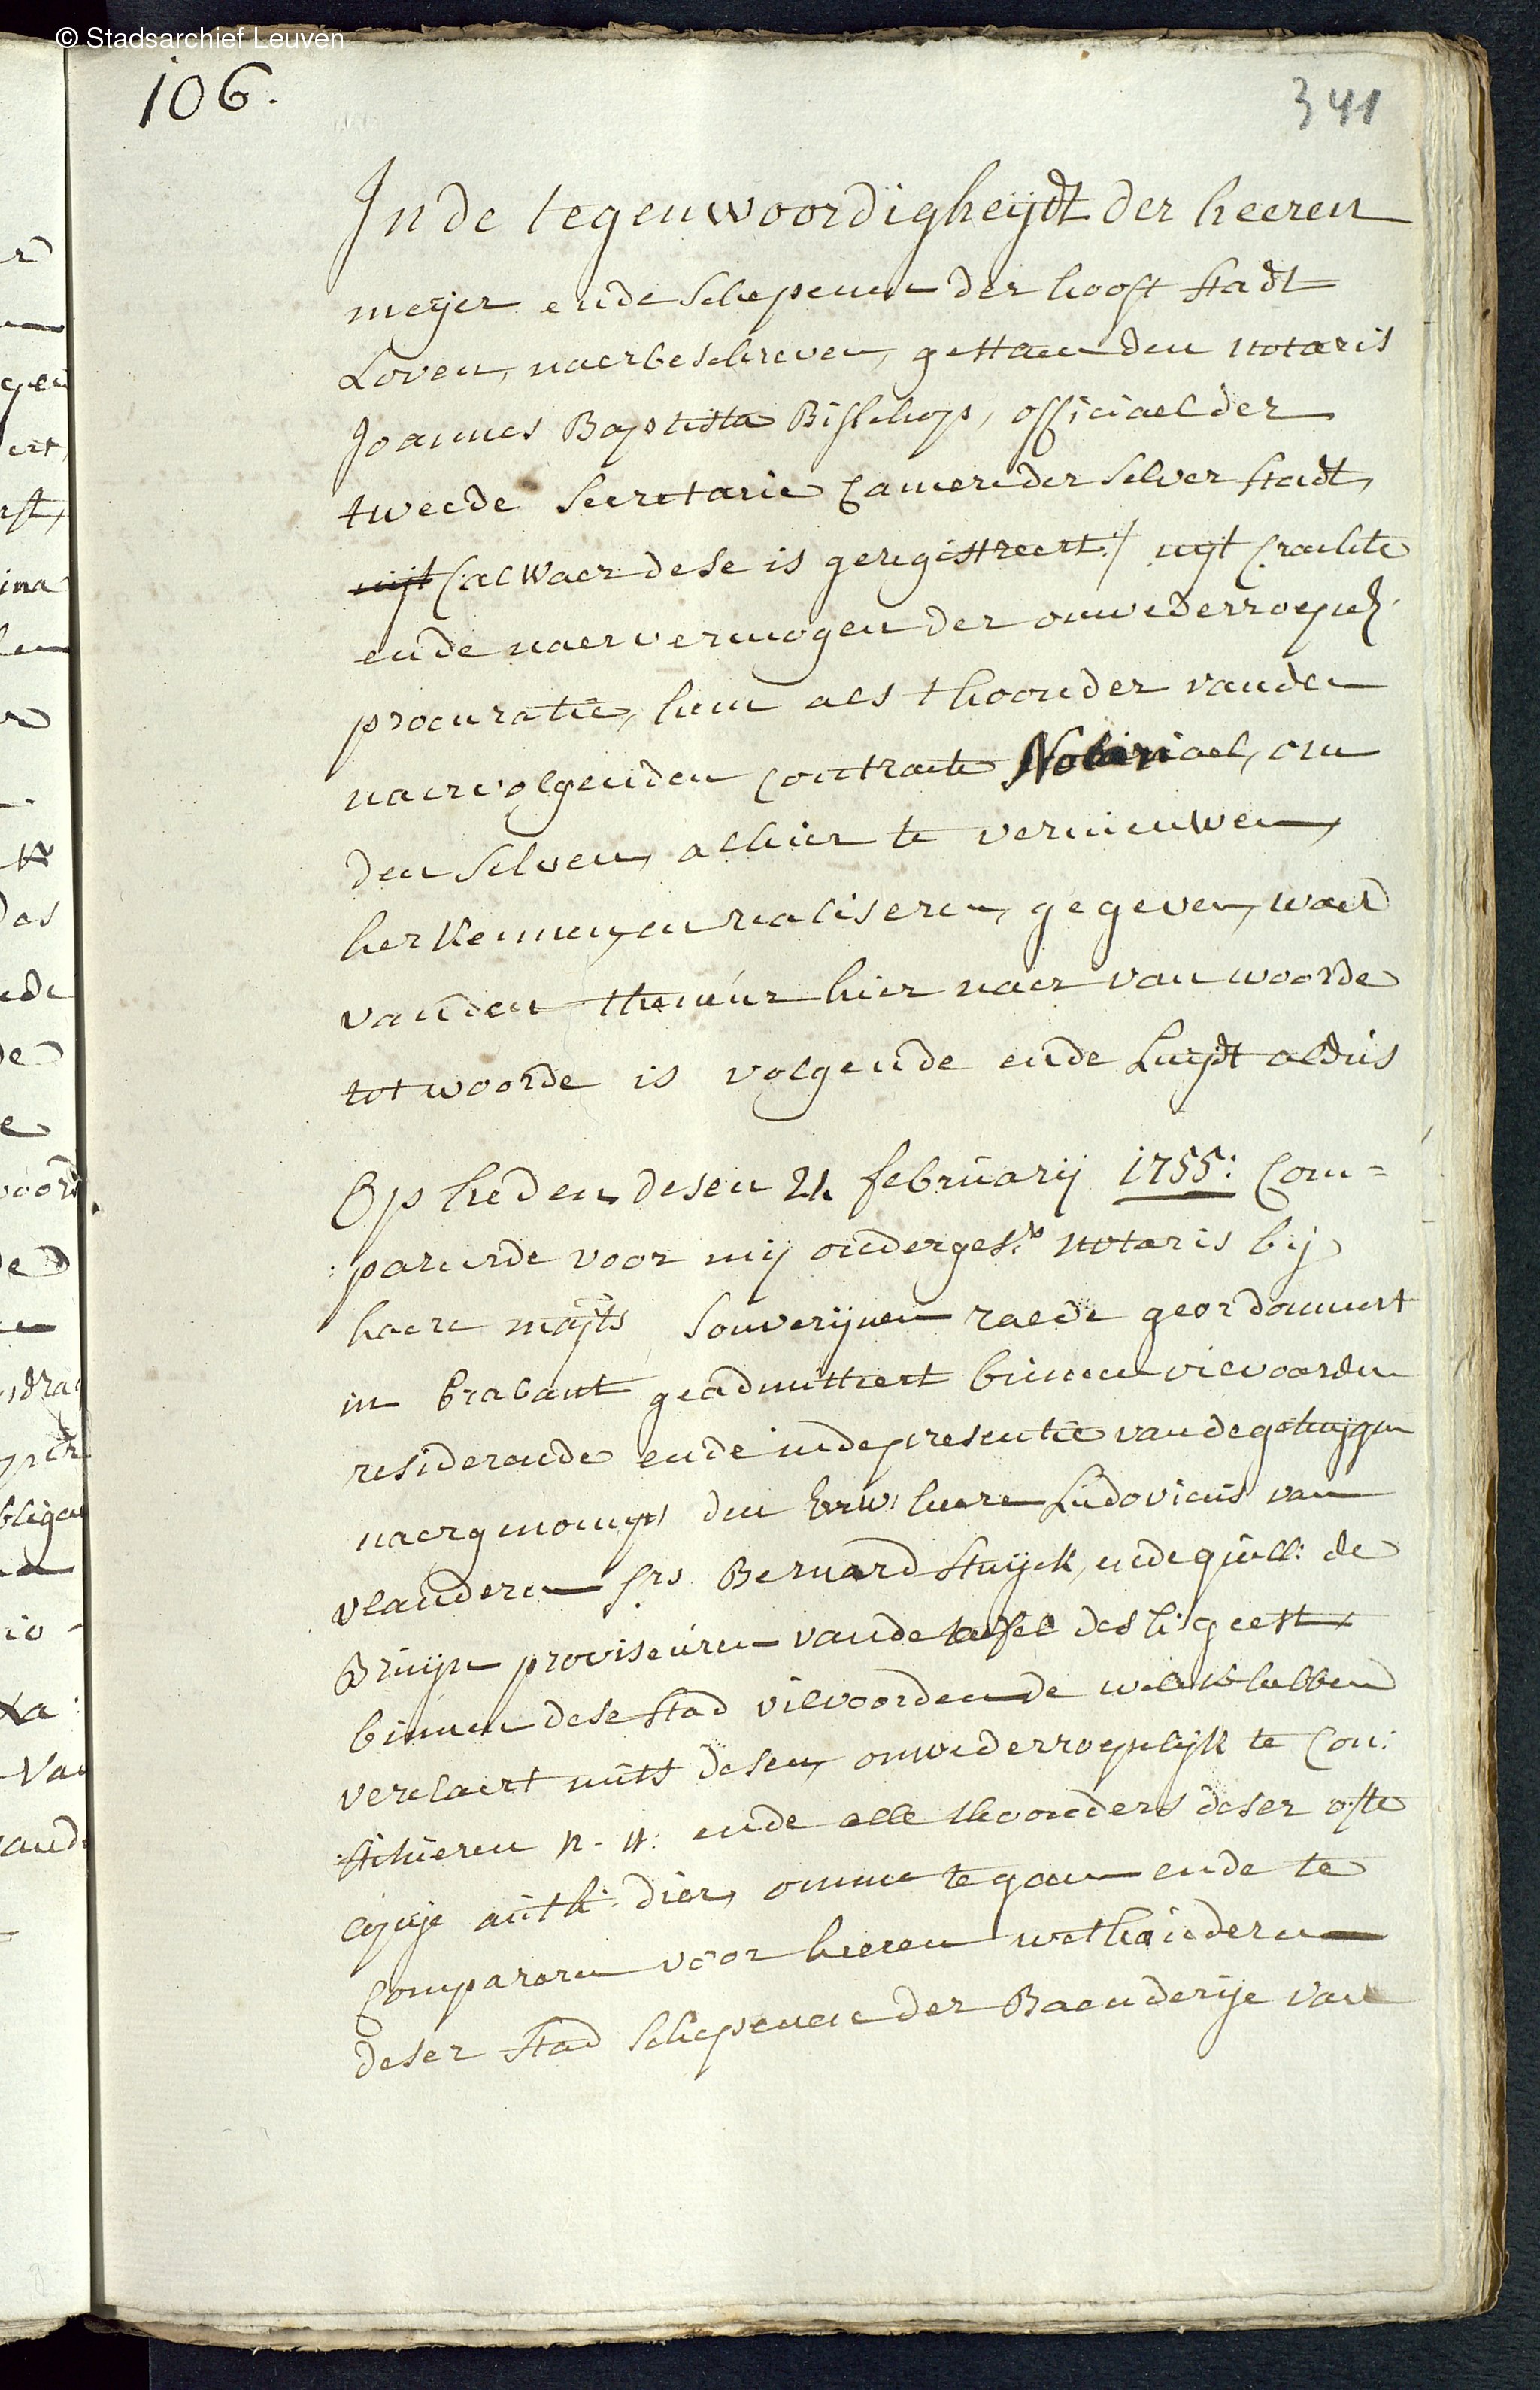 © Stadsarchief Leuven
106.
341
In de tegenwoordigheijdt der heeren
meijer ende schepenen der hooft stadt
Loven, naerbeschreven, gestaen den notaris
Joannes Baptista Bisschops, officiael der
tweede secretarie Camere der selver stadt,
uijt (alwaer dese is geregistreert) uijt crachte
ende naer vermogen der onwederroepel:
procuratie, hem als thoonder vanden
naervolgenden contracte Notariael, om
den selven, alhier te vernieuwen,
herkennen, en realiseren, gegeven, waer
vanden theneur hier naer van woorde
tot woorde is volgende ende luijdt aldus
Op heden desen 21 februarij 1755: Com=
:pareerde voor mij onderges: notaris bij
haere majts souverijnen raede geordonneert
in brabant geadmitteert binnen vilvoorden
residerende ende in de presentie vande getuijgen
naergenompt den Eerw: heere Ludovicus van
vlanderen frs Bernard Stuijck, ende guill: de
Bruijn proviseuren vande taefel des h: geest
binnen dese stad vilvoorden de welcke hebben
verclaert mits desen, onwederroepelijk te Con:
:stitueren N. N: ende alle thoonders deser ofte
copije auth: dier, omme te gaen ende te
Compareren voor heeren wethouderen
deser stad schepenen der Baenderije van